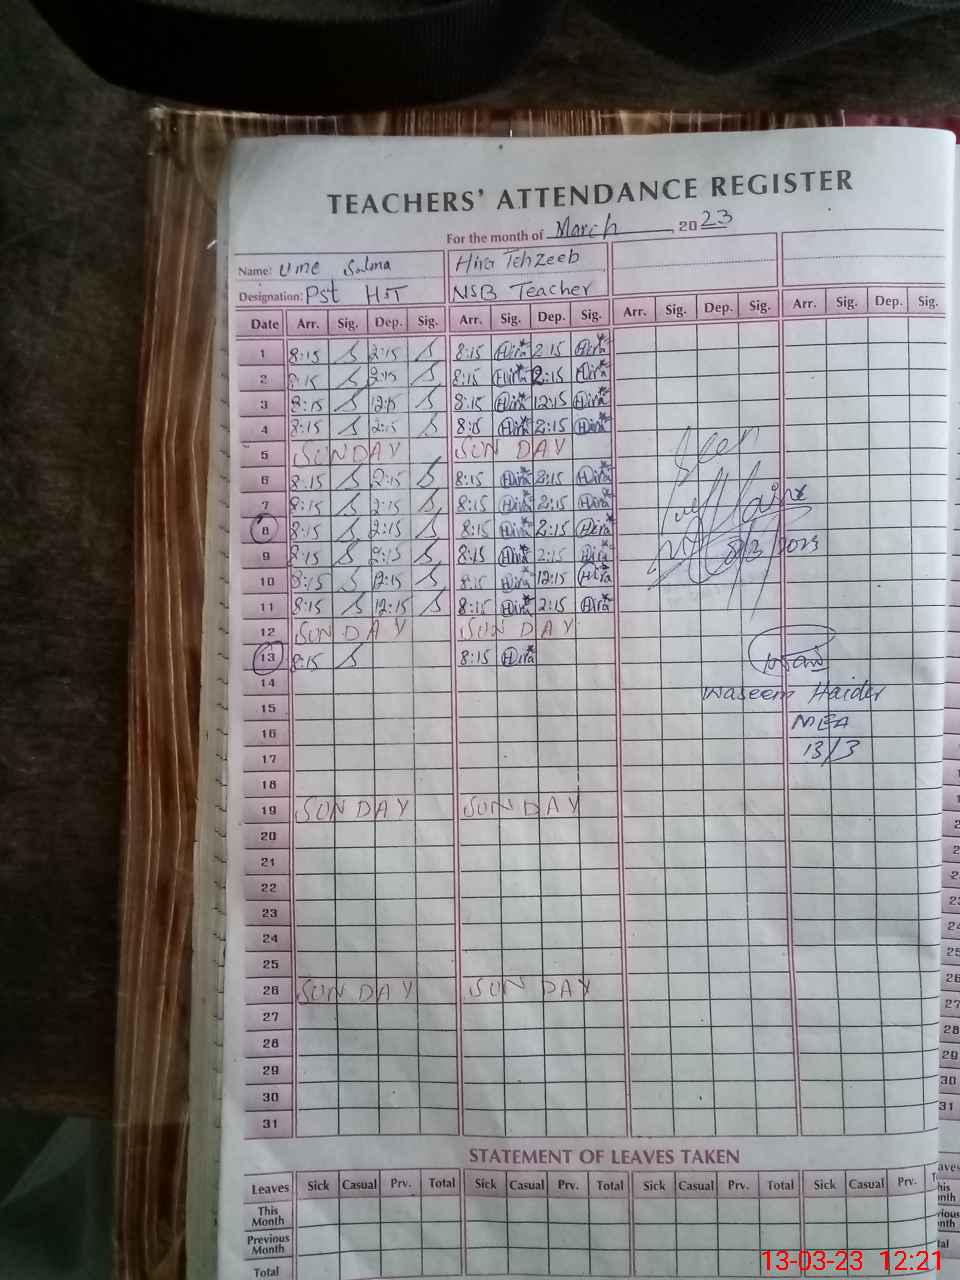 TEACHERS' ATTENDANCE REGISTER
For the month of March 2023
Name: Ume Salma Hira Tehzeeb
Designation: Pst H.T NSB Teacher
Date Arr. Sig. Dep. Sig. Arr. Sig. Dep. Sig. Arr. Sig. Dep. Sig. Arr. Sig. Dep. Sig.
1 8:15 2:15 8:15 Hira 2:15 Hira
2 8:15 2:15 8:15 Hira 2:15 Hira
3 8:15 12:15 8:15 Hira 12:15 Hira
4 8:15 2:15 Hira 2:15 Hira
5 SUNDAY SUNDAY
Seen
6 8:15 2:15 8:15 Hira 2:15 Hira
7 8:15 2:15 8:15 Hira 2:15 Hira
8 8:15 2:15 8:15 Hira 2:15 Hira
8/3/2023
9 8:15 2:15 8:15 Hira 2:15 Hira
10 8:15 12:15 8:15 Hira 12:15 Hira
11 8:15 12:15 8:15 Hira 2:15 Hira
12 SUNDAY SUNDAY
13 8:15 8:15 Hira
14
Waseem Haider
15
MEA
16
13/3
17
18
19 SUNDAY SUNDAY
20
21
22
23
24
25
26 SUNDAY SUNDAY
27
28
29
30
31
STATEMENT OF LEAVES TAKEN
Leaves Sick Casual Prv. Total Sick Casual Prv. Total Sick Casual Prv. Total Sick Casual Prv.
This Month
Previous Month
Total
13-03-23 12:21